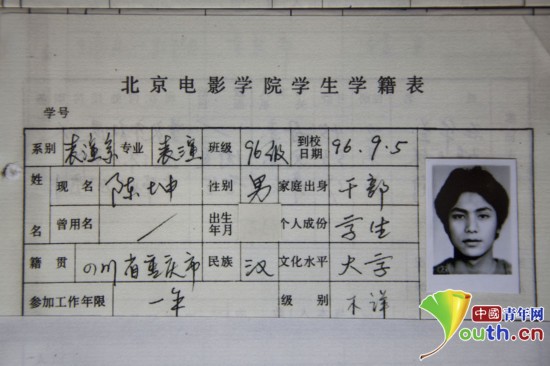 北京电影学院学生学籍表
学号
系别 表演系 专业 表演 班级 96级 到校日期 96.9.5
姓名 现名 陈坤 性别 男 家庭出身 干部
曾用名 / 出生年月 个人成份 学生
籍贯 四川省重庆市 民族 汉 文化水平 大学
参加工作年限 一年 级别 不详
中國青年网
youth.cn